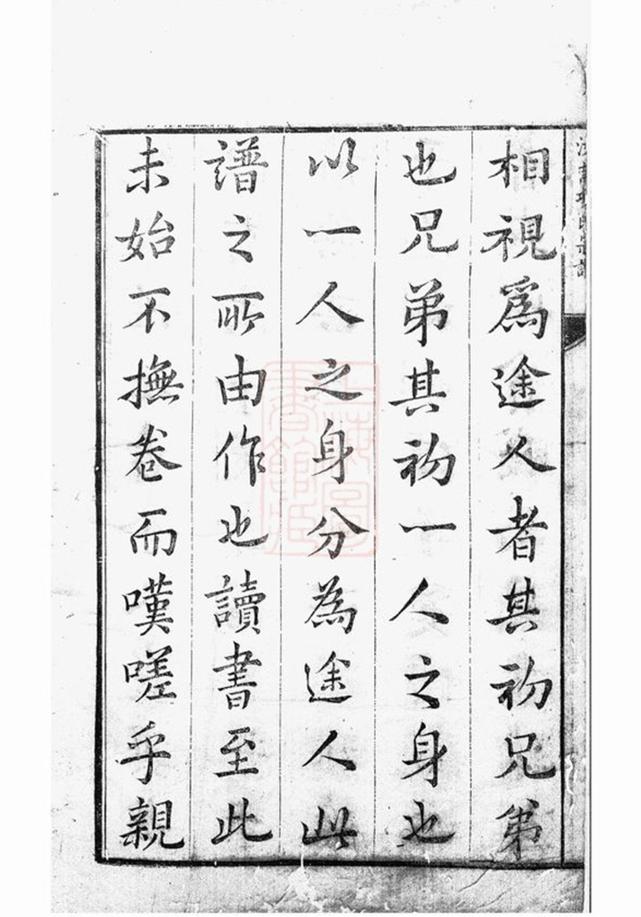 相視爲途人者其初兄弟
也兄弟其初一人之身也
以一人之身分為途人此
譜之所由作也讀書至此
未始不撫卷而嘆嗟乎親